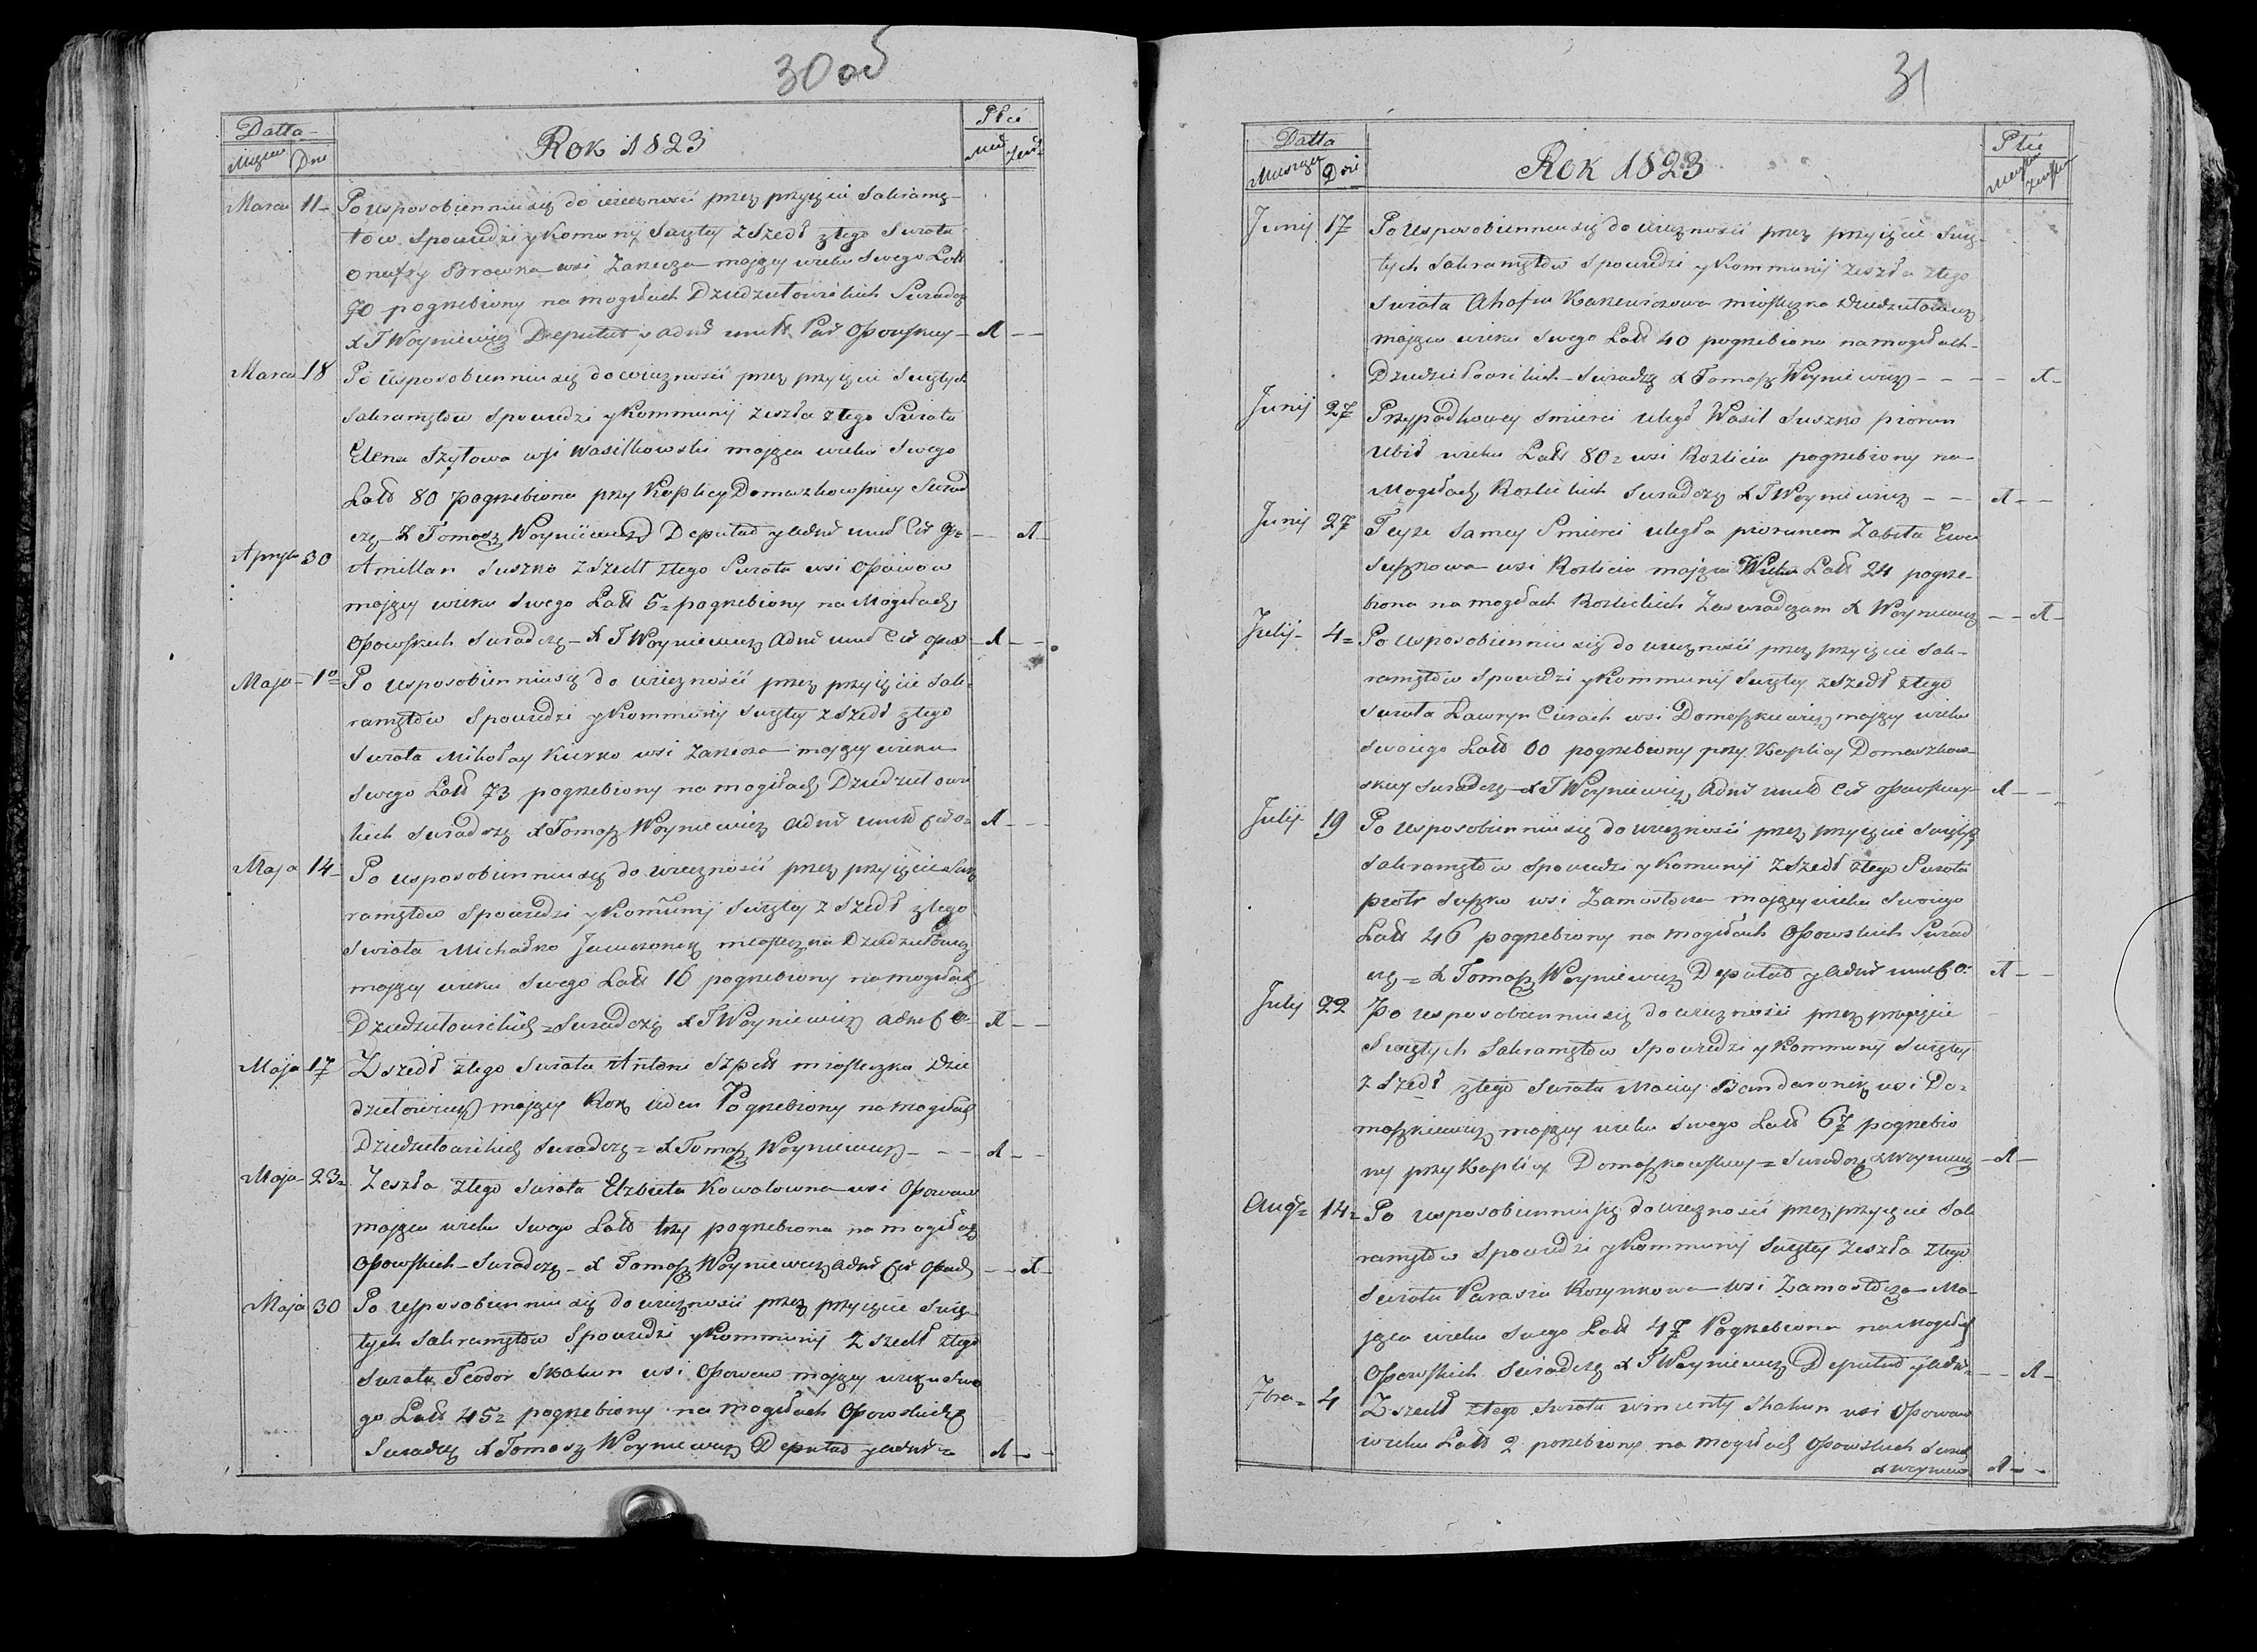 30 об
Datta
Rok 1823
Płci
Miesiąc Dni
Marca 11 Po usposobienniu się do wieczności przez przyięcie Sakramę-
tow Spowiedzi y Komunij Swiętey zszedł ztego Swiata
Onufry Browka wsi Zarzecza maiący wieku Swego Latt
70 pogrzebiony na mogiłach Dziedziłowickich Swiadczę
X T Woyniewicz Deputat y admr - 1 - -
Marca 18 Po usposobienniu się do wieczności przez przyięcie Swiętych
Sakramętow Spowiedzi y Kommunij zeszła ztego Swiata
Elena Szytowa wsi Wasilkowski maiąca wieku Swego
Latt 80 pogrzebiona przy Kaplicy Domaszkowskiey Swiad
czę X Tomasz Woyniewicz Deputat y admr - - 1 -
Apryla 30 Amillan Suszko zszedł ztego Swiata wsi Opowow
maiący wieku Swego Latt 5 = pogrzebiony na Mogiłach
Opowskich Swiadczę - X T Woyniewicz - 1 - -
Maja 1o = Po usposobienniu się do wieczności przez przyięcie Sak-
ramętow Spowiedzi y Kommunij Swiętey zszedł ztego
Swiata Mikołay Kurko wsi Zarzecza maiący wieku
Swego Latt 73 pogrzebiony na mogiłach Dziedziłowi
ckich Swiadczę X Tomasz Woyniewicz - 1 - -
Maja 14 - Po usposobienniu się do wieczności przez przyięcie Sak
ramętow Spowiedzi y Komunij Swiętey zszedł ztego
Swiata Michałko miasteczka Dziedziłowicz
maiący wieku Swego Latt 16 pogrzebiony na mogiłach
Dziedziłowickich = Swiadczę X T Woyniewicz - 1 - -
Maja 17 Zszedł ztego Swiata Antoni miasteczka Dzie
dziłowicz maiący Rok ieden Pogrzebiony na mogiłach
Dziedziłowickich Swiadczę = X Tomasz Woyniewicz - - - 1 - -
Maja 23 = Zeszła ztego Swiata Elzbieta Kowalowna wsi Opowow
maiąca wieku Swego Latt trzy pogrzebiona na mogiłach
Opowskich - Swiadczę - X Tomasz Woyniewicz - - 1 -
Maja 30 Po usposobienniu się do wieczności przez przyięcie Swię-
tych Sakramętow Spowiedzi y Kommunij Zszedł ztego
Swiata Teodor Skakun wsi Opowow maiący wieku Swe
go Latt 45 = pogrzebiony na mogiłach Opowskich
Swiadczę X Tomasz Woyniewicz Deputat y admr = 1 - -
31
Datta
Rok 1823
Płci
Miesiąc Dni
Junij 17 Po usposobienniu się do wieczności przez przyięcie Swię-
tych Sakramętow Spowiedzi y Kommunij zeszła ztego
Swiata Ahafia miasteczka Dziedziłowicz
maiąca wieku Swego Latt 40 pogrzebiona na mogiłach
Dziedziłowickich - Swiadczę X Tomasz Woyniewicz - - - - 1 -
Junij 27 Przypadkowey smierci uległ Wasil Suszko piorun
ubił wieku Latt 80 = wsi pogrzebiony na
Mogiłach Swiadczę X T Woyniewicz - - 1 - -
Junij 27 Teyże Samey Smierci uległa piorunem Zabita Ewa
Suszkowa wsi maiąca Wieku Latt 24 pogrze-
biona na mogiłach Zaswiadczam X Woyniewicz - - 1 -
Julij - 4 = Po usposobienniu się do wieczności przez przyięcie Sak-
ramętow Spowiedzi y Kommunij Swiętey zszedł ztego
Swiata Lawryn wsi Domaszkiewicz maiący wieku
Swoiego Latt 60 pogrzebiony przy Kaplicy Domaszkow-
skiey Swiadczę - X T Woyniewicz 1 - -
Julij 19 Po usposobienniu się do wieczności przez przyięcie Swiętych
Sakramętow Spowiedzi y Komunij zszedł ztego Swiata
piotr Suszko wsi Zamostocza maiący wieku Swoiego
Latt 46 pogrzebiony na Mogiłach Opowskich Swiad
czę = X Tomasz Woyniewicz Deputat y admr 1 - -
Julij 22 Po usposobienniu się do wieczności przez przyięcie
Swiętych Sakramętow Spowiedzi y Kommunij Swiętey
zszedł ztego Swiata Maciey Bondaronek wsi Do-
maszkiewicz maiący wieku Swego Latt 67 pogrzebio
ny przy Kaplicy Domaszkowskiey = Swiadczę - 1 -
Augt = 14 = Po usposobienniu się do wieczności przez przyięcie Sak
ramętow Spowiedzi y Kommunij Swiętey Zeszła ztego
Swiata Parasia wsi Zamostocza Ma-
iąca wieku Swego Latt 47 Pogrzebiona na Mogiłach
Opowskich Swiadczę X T Woyniewicz Deputat y admr - - 1 -
7bra = 4 Zszedł ztego Swiata wincenty Skakun wsi Opowow
wieku Latt 2 pogrzebiony na Mogiłach Opowskich
1 - -